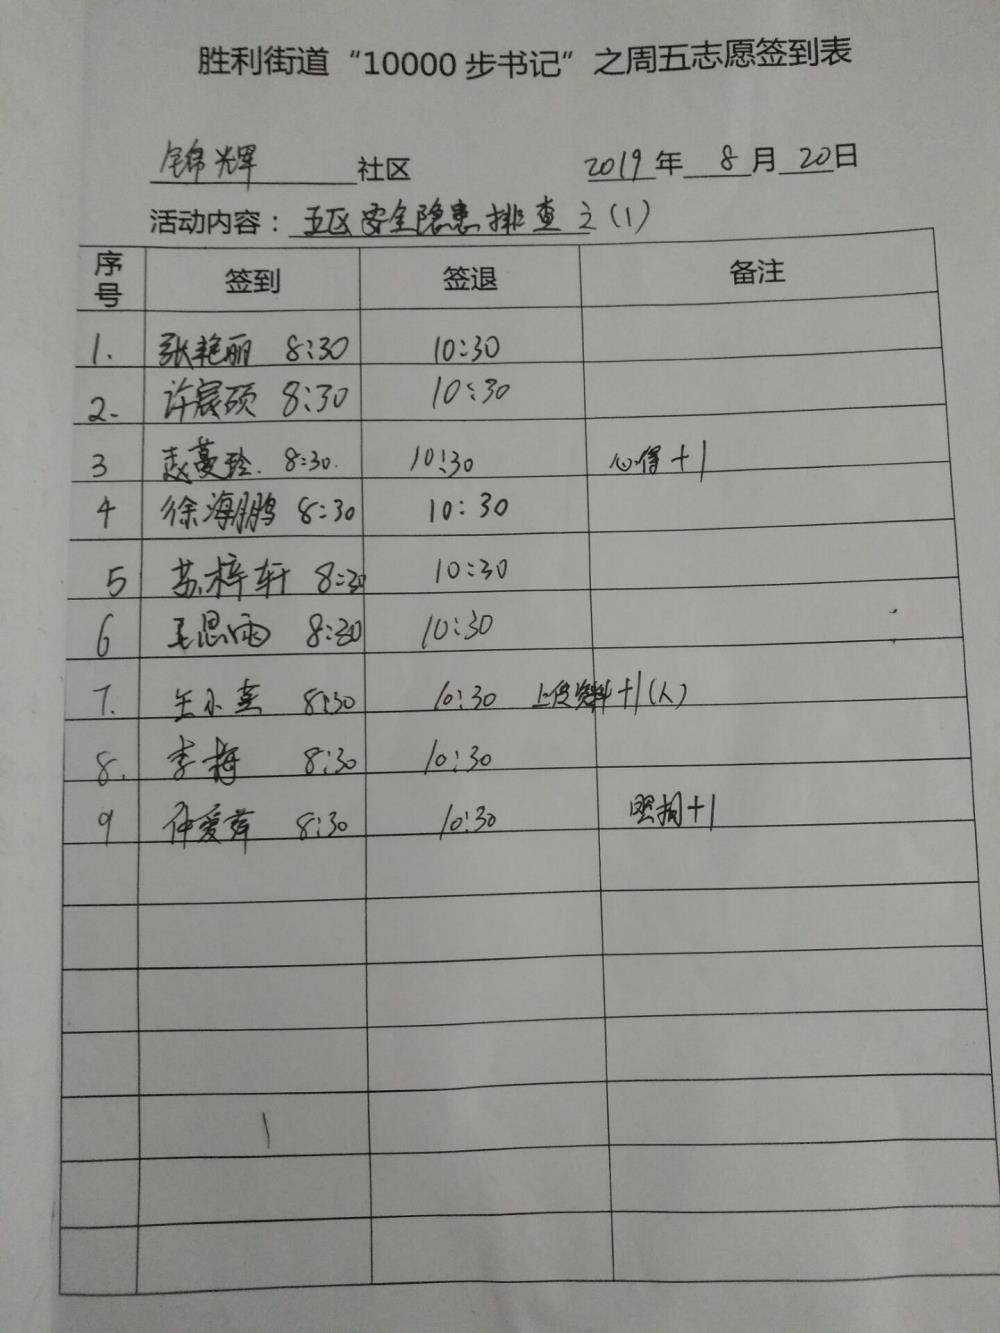 胜利街道“10000步书记”之周五志愿签到表
锦辉 社区 2019年 8月 20日
活动内容：五区安全隐患排查之(1)
序号 签到 签退 备注
1. 张艳丽 8:30 10:30
2. 许宸硕 8:30 10:30
3 赵蔓玲. 8:30. 10:30 心得+1
4 徐海鹏 8:30 10:30
5 苏梓轩 8:30 10:30
6 王思雨 8:30 10:30
7. 王小燕 8:30 10:30 上传资料+1(人)
8. 李梅 8:30 10:30
9 仲爱萍 8:30 10:30 照相+1